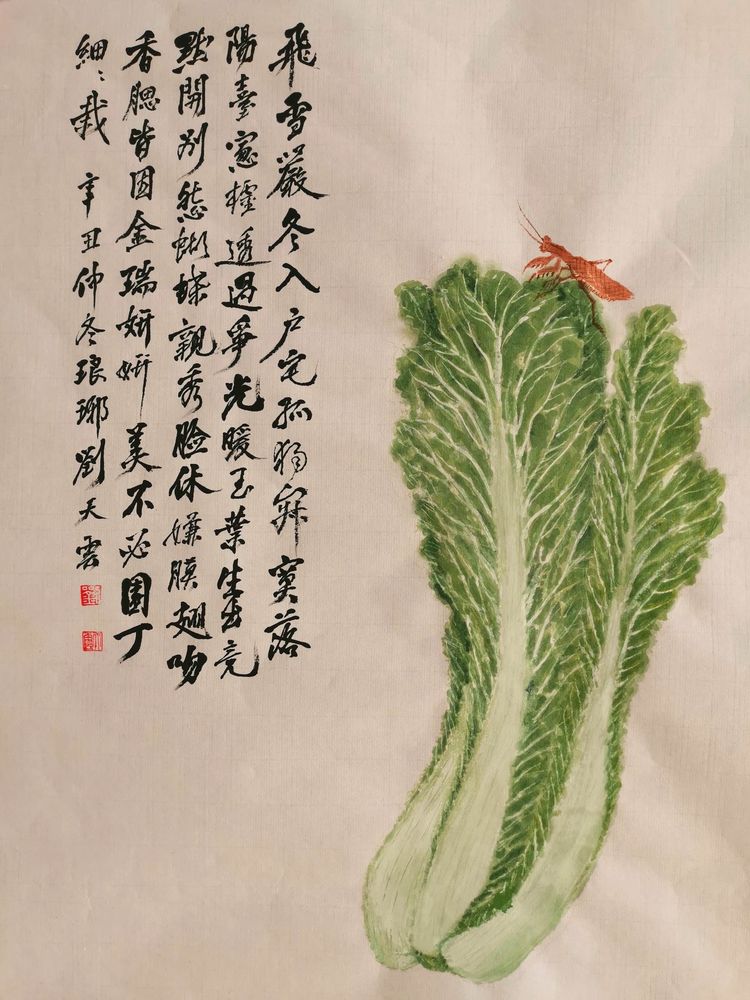 飛雪嚴冬入户宅孤獨寂寞落
陽臺窗櫺透過爭光暖玉葉生出竞
點開別態蝴蝶親秀臉休嫌膜翅吻
香腮皆因金瑞妍妍美不必園丁
細〻栽 辛丑仲冬琅琊劉天雲